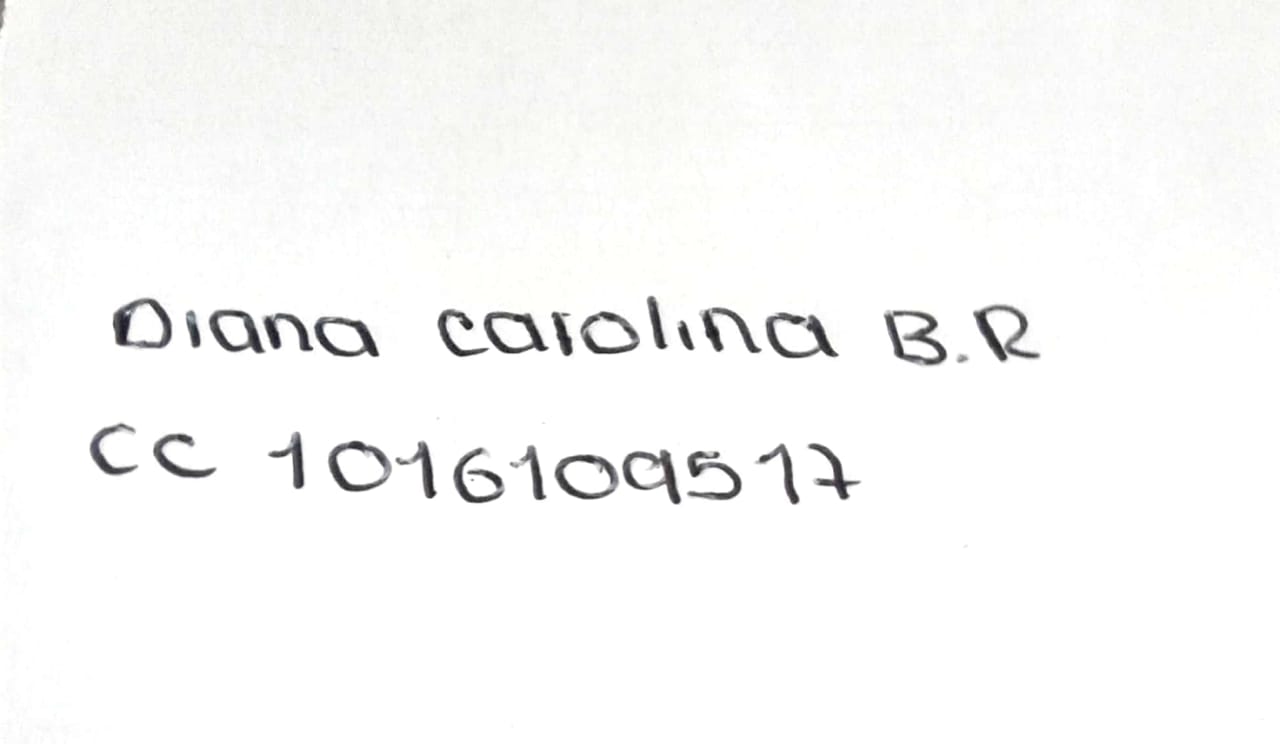 Diana carolina B.R
CC 1016109517